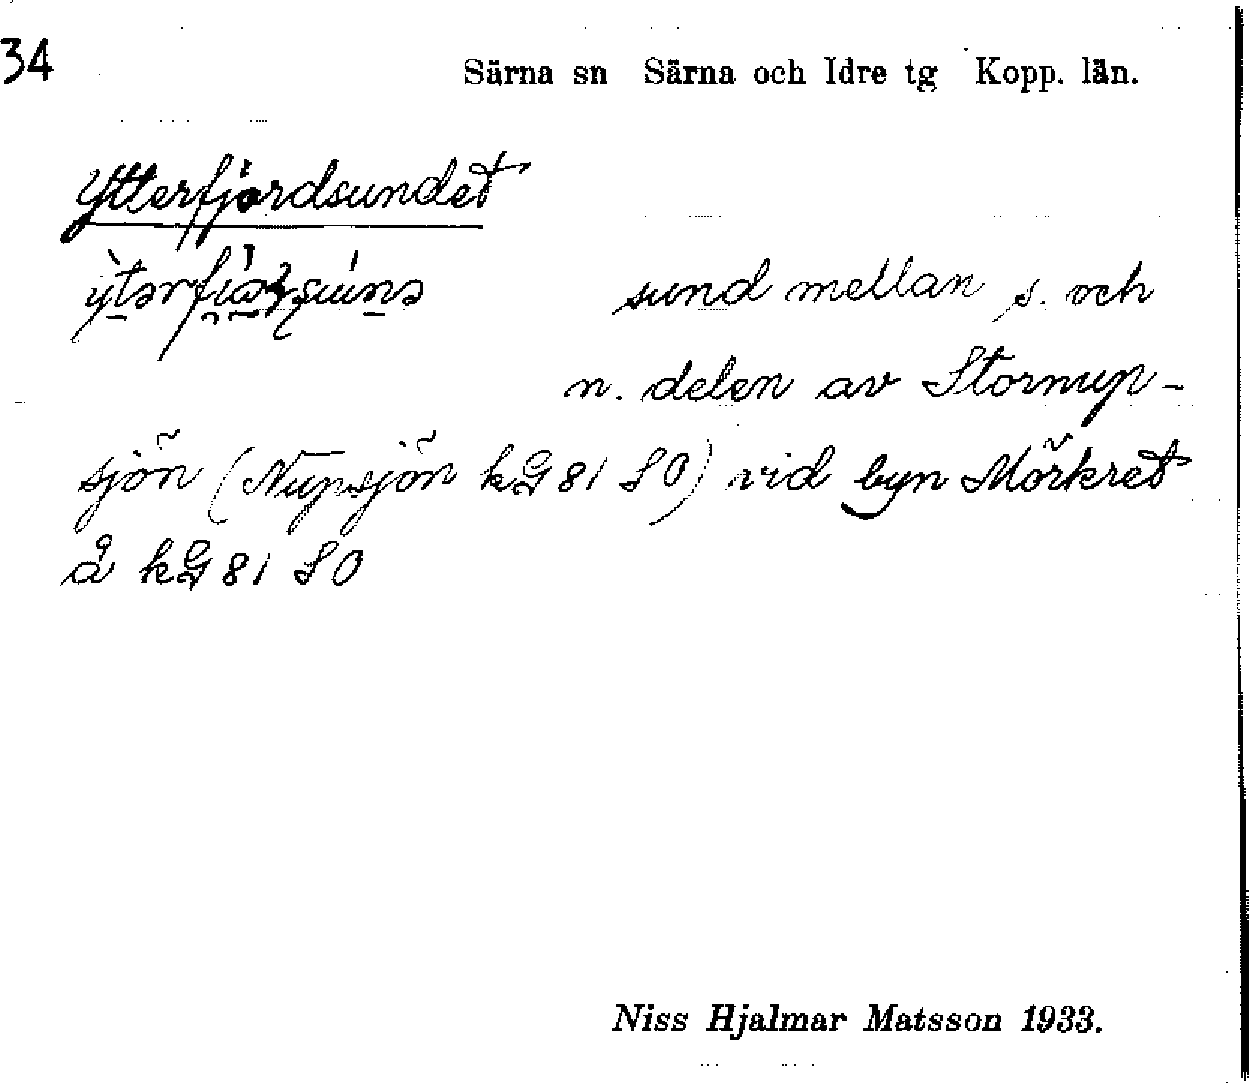 34
Särna sn Särna och Idre tg Kopp. län.
Ytterfjordsundet
sund mellan s. och
n. delen av Stornup-
sjön (Nupsjön kG 81 SO) vid byn Mörkret
å kG 81 SO
Niss Hjalmar Matsson 1933.